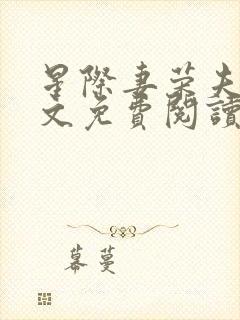 星際妻荣夫
文免費閱讀
幕蔓